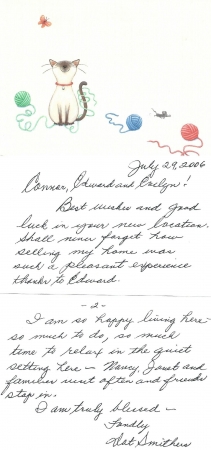 July 29, 2006
Connor, Edward and Evelyn!
Best wishes and good
luck in your new location.
Shall never forget how
selling my home was
such a pleasant experience
thanks to Edward.
-2-
I am so happy living here-
so much to do, so much
time to relax in the quiet
setting here - Nancy, Janet and
families visit often and friends
stop in.
I am truly blessed -
Fondly
Smithers